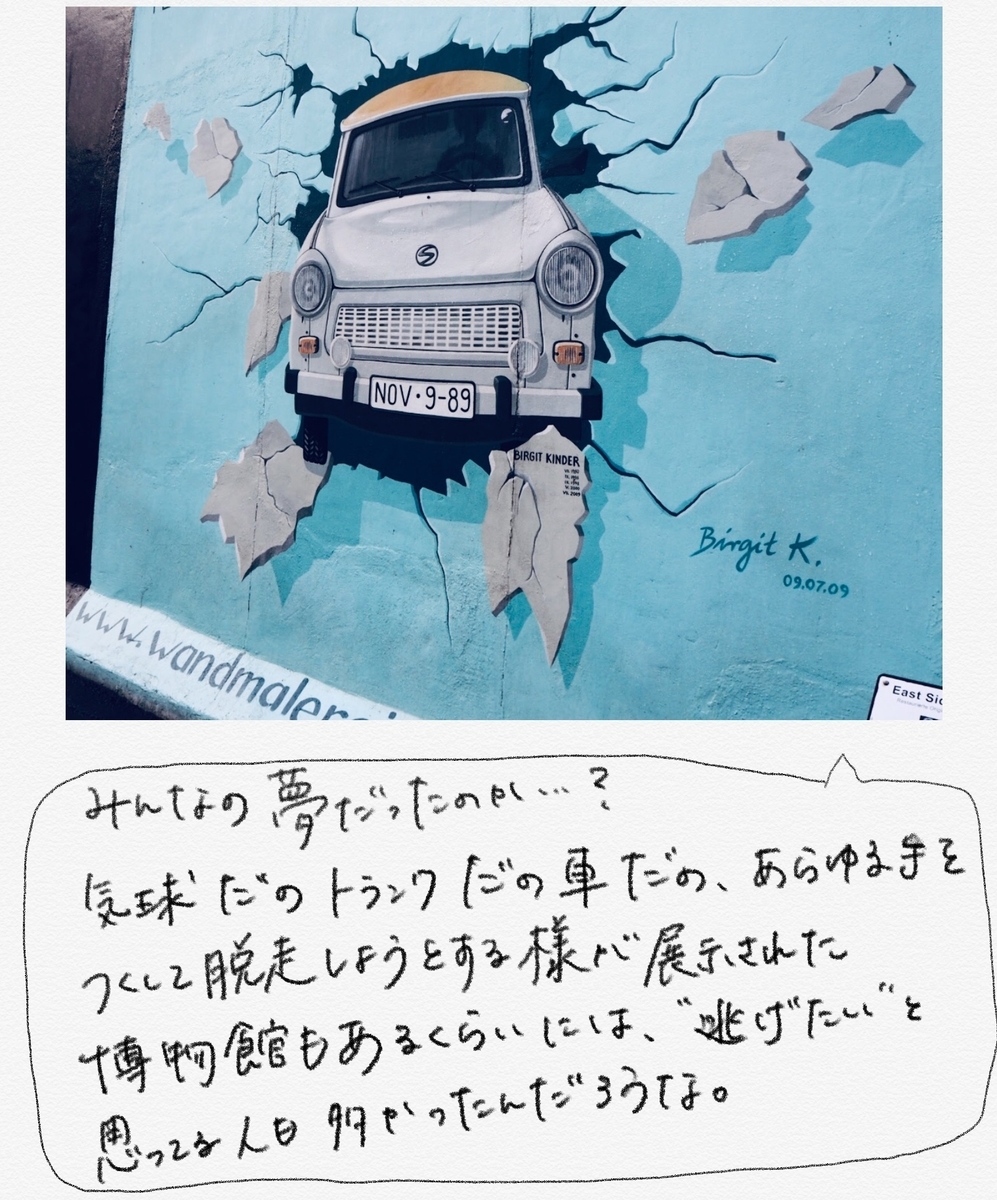 NOV・9-89
BIRGIT KINDER
Birgit K.
09.07.09
www.wandmaler
East Sid
みんなの夢だったのかい…?
気球だのトランクだの車だの、あらゆる手を
つくして脱走しようとする様が展示された
博物館もあるくらいには、"逃げたい"と
思ってる人も多かったんだろうな。